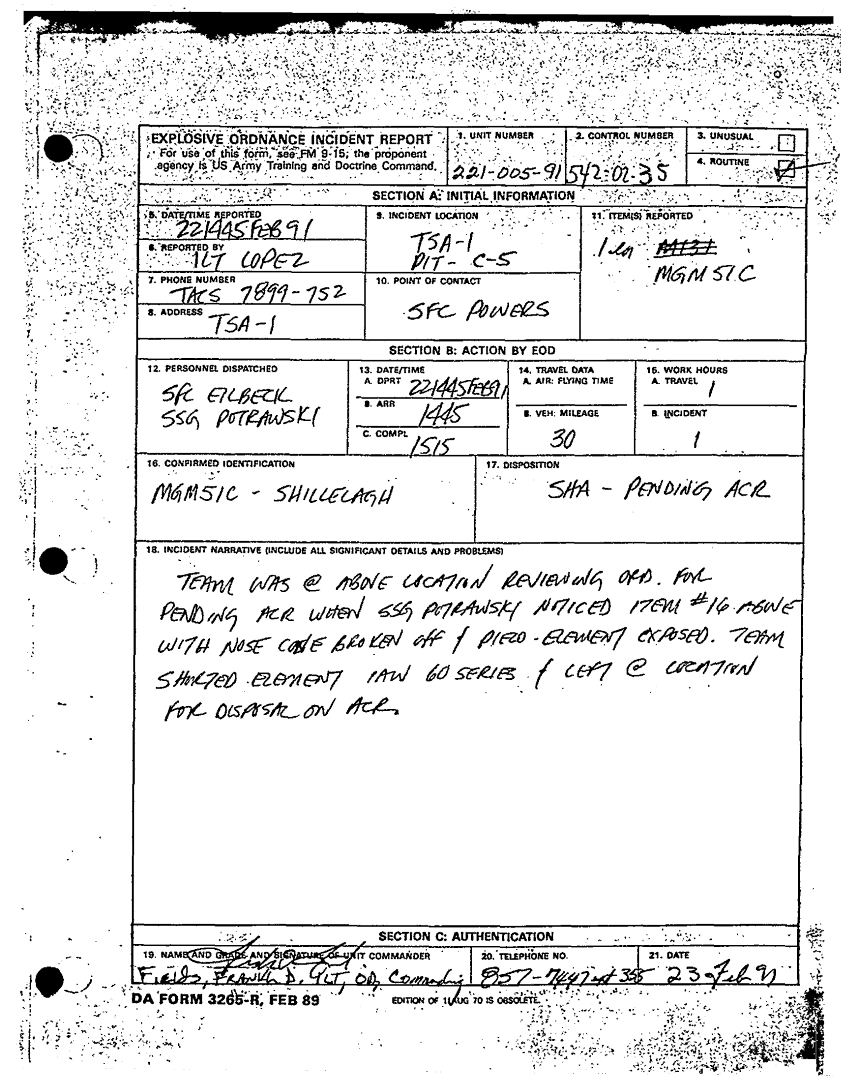 EXPLOSIVE ORDNANCE INCIDENT REPORT
For use of this form, see FM 9-15; the proponent
agency is US Army Training and Doctrine Command.
1. UNIT NUMBER
221-005-91
2. CONTROL NUMBER
542-02-35
3. UNUSUAL
4. ROUTINE
SECTION A: INITIAL INFORMATION
5. DATE/TIME REPORTED
221445FEB91
6. REPORTED BY
1LT LOPEZ
7. PHONE NUMBER
TACS 7899-752
8. ADDRESS
TSA-1
9. INCIDENT LOCATION
TSA-1
PIT- C-5
10. POINT OF CONTACT
SFC POWERS
11. ITEM(S) REPORTED
1 ea
MGM 51C
SECTION B: ACTION BY EOD
12. PERSONNEL DISPATCHED
SFC EILBECK
SSG POTRAWSKI
13. DATE/TIME
A. DPRT 221445FEB91
B. ARR
1445
C. COMPL
1515
14. TRAVEL DATA
A. AIR: FLYING TIME
B. VEH: MILEAGE
30
15. WORK HOURS
A. TRAVEL
1
B. INCIDENT
1
16. CONFIRMED IDENTIFICATION
MGM51C - SHILLELAGH
17. DISPOSITION
SHA - PENDING ACR
18. INCIDENT NARRATIVE (INCLUDE ALL SIGNIFICANT DETAILS AND PROBLEMS)
TEAM WAS @ ABOVE LOCATION REVIEWING ORD. FOR
PENDING ACR WHEN SSG POTRAWSKI NOTICED ITEM #16 ABOVE
WITH NOSE CONE BROKEN OFF & PIEZO-ELEMENT EXPOSED. TEAM
SHORTED ELEMENT IAW 60 SERIES & LEFT @ LOCATION
FOR DISPOSAL ON ACR.
SECTION C: AUTHENTICATION
19. NAME AND GRADE AND SIGNATURE OF UNIT COMMANDER
Fields, Frank D. 1LT, OD, Commanding
20. TELEPHONE NO.
857-7447 ext 355
21. DATE
23 Feb 91
DA FORM 3265-R, FEB 89
EDITION OF 1 AUG 70 IS OBSOLETE.